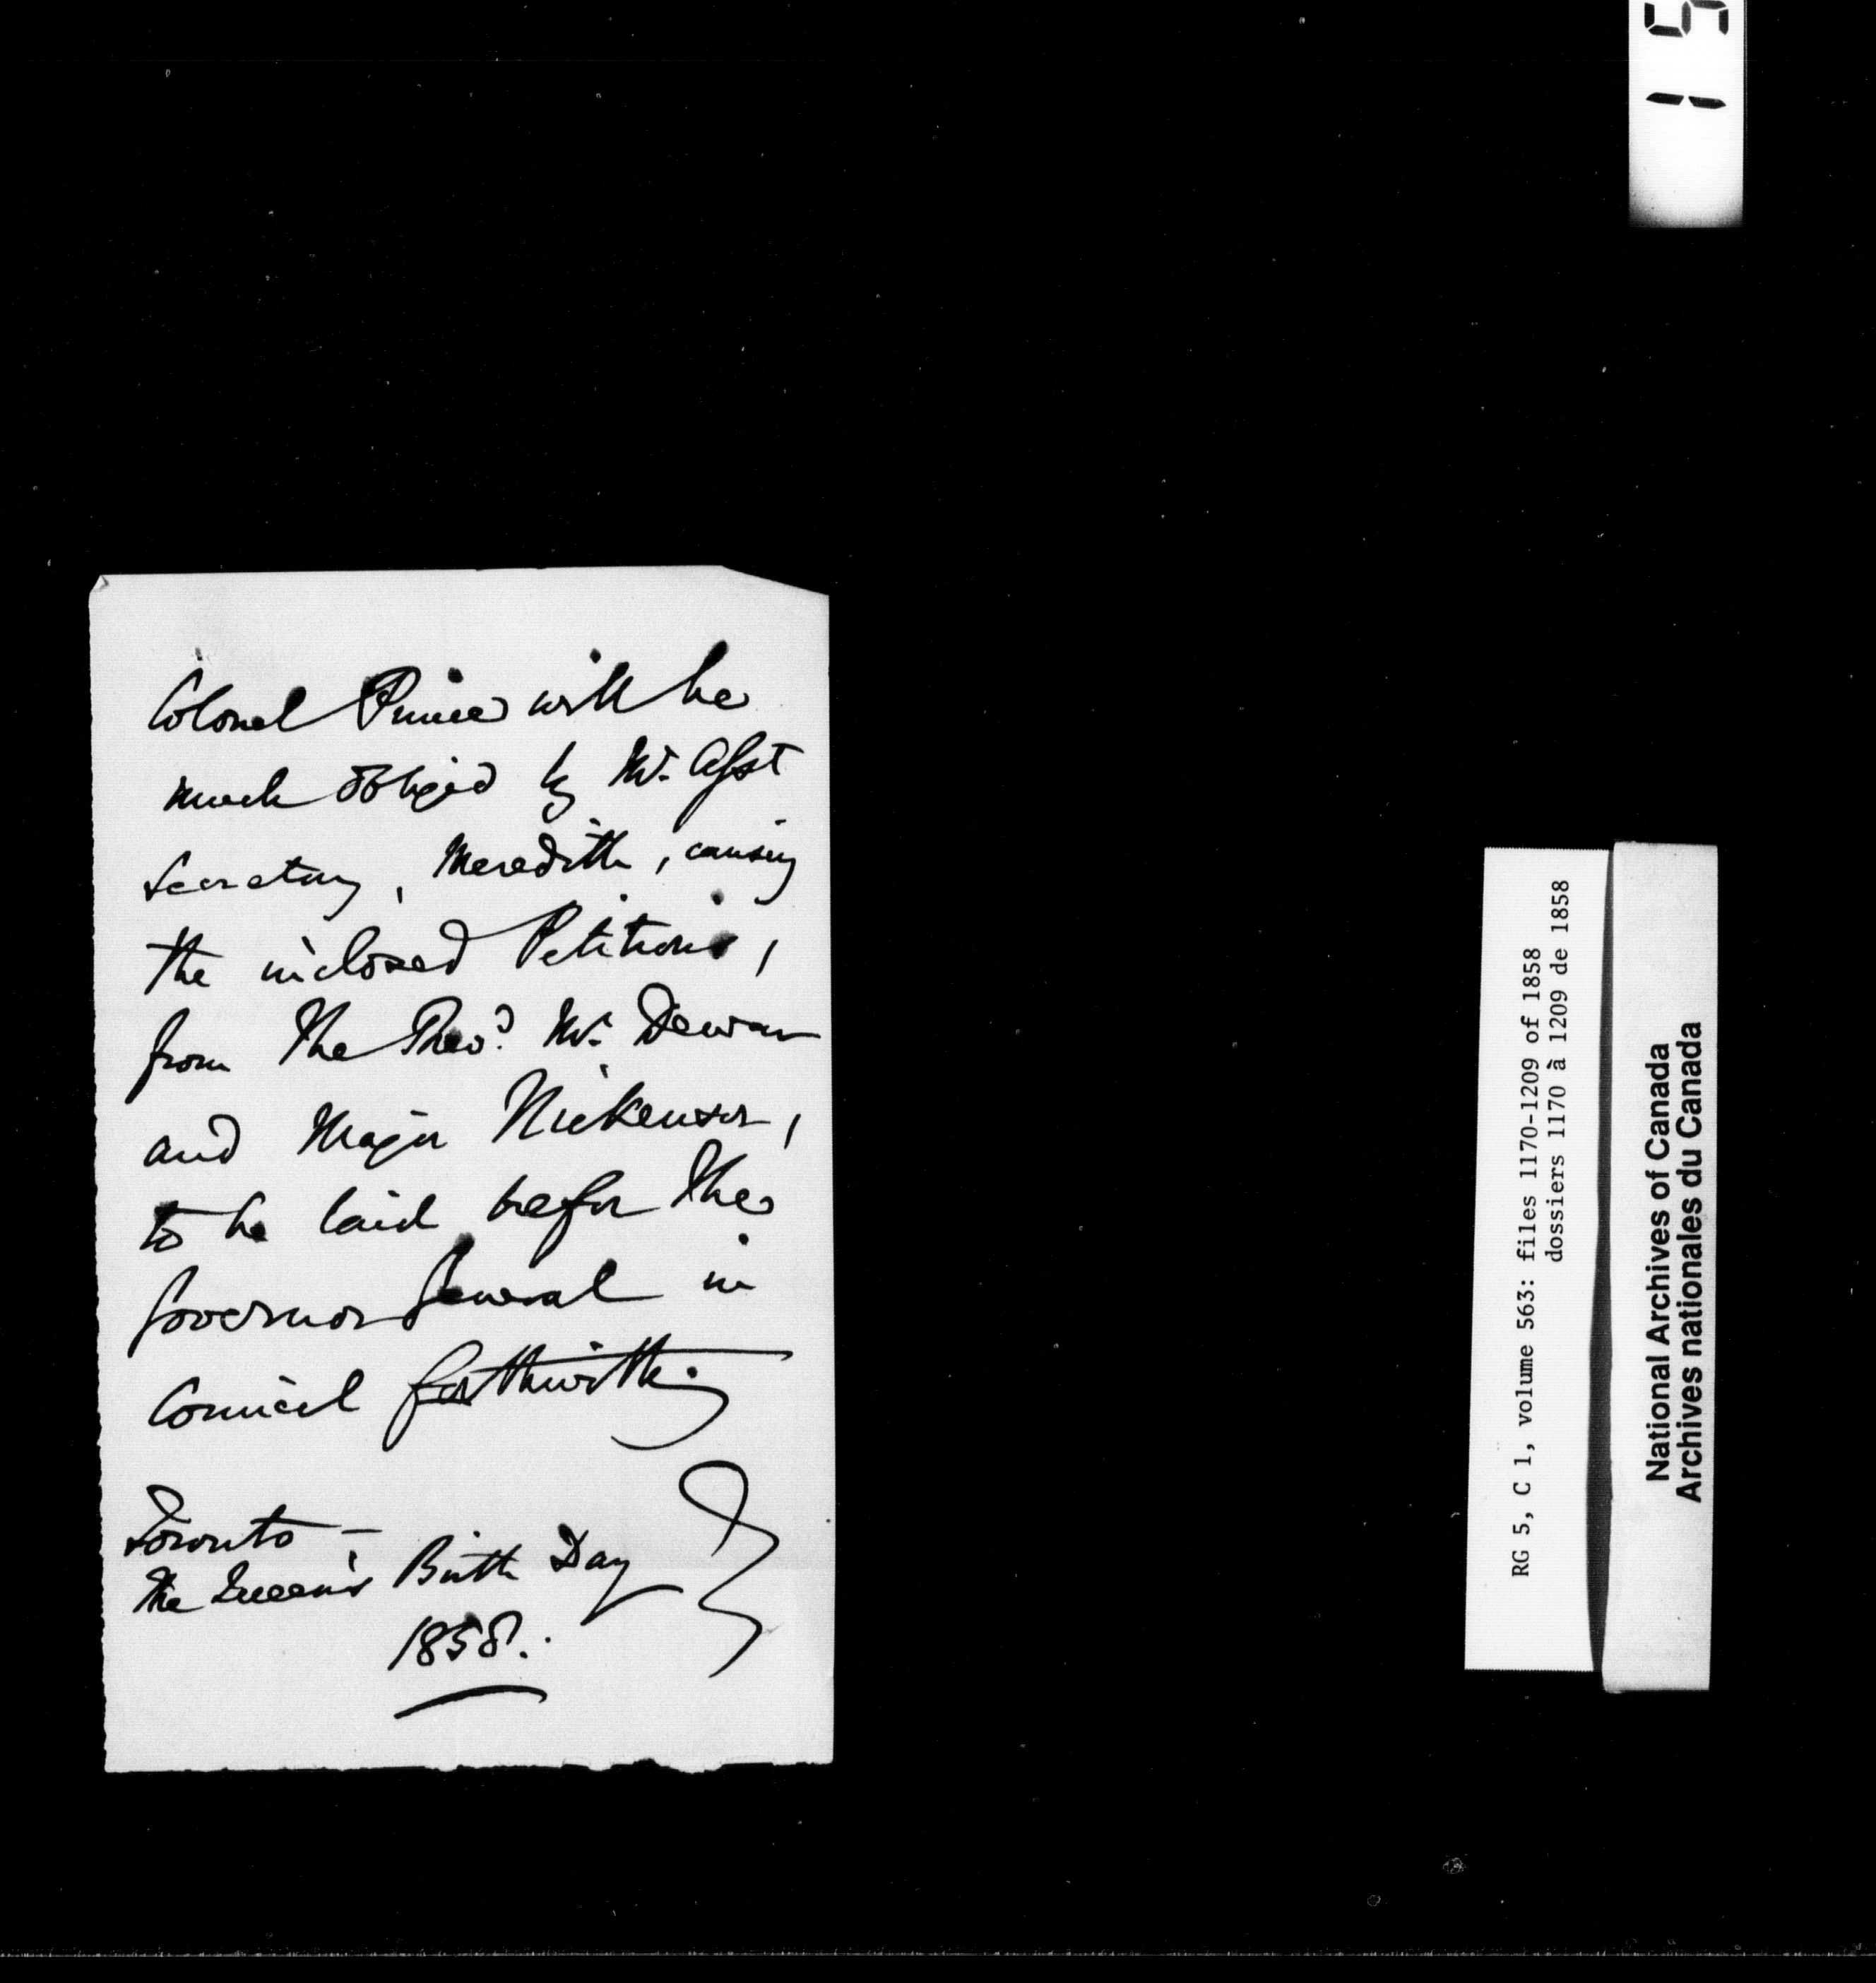 Colonel Prince will be
much obliged by Mr. Asst
Secretary, Meredith, causing
the inclosed Petitions,
from the Revd. Mr. Dewar
and Major Nickenson,
to be laid before the
Governor General in
Council forthwith.
Toronto —
The Queen's Birth Day
1858.
RG 5, C 1, volume 563: files 1170-1209 of 1858
dossiers 1170 à 1209 de 1858
National Archives of Canada
Archives nationales du Canada